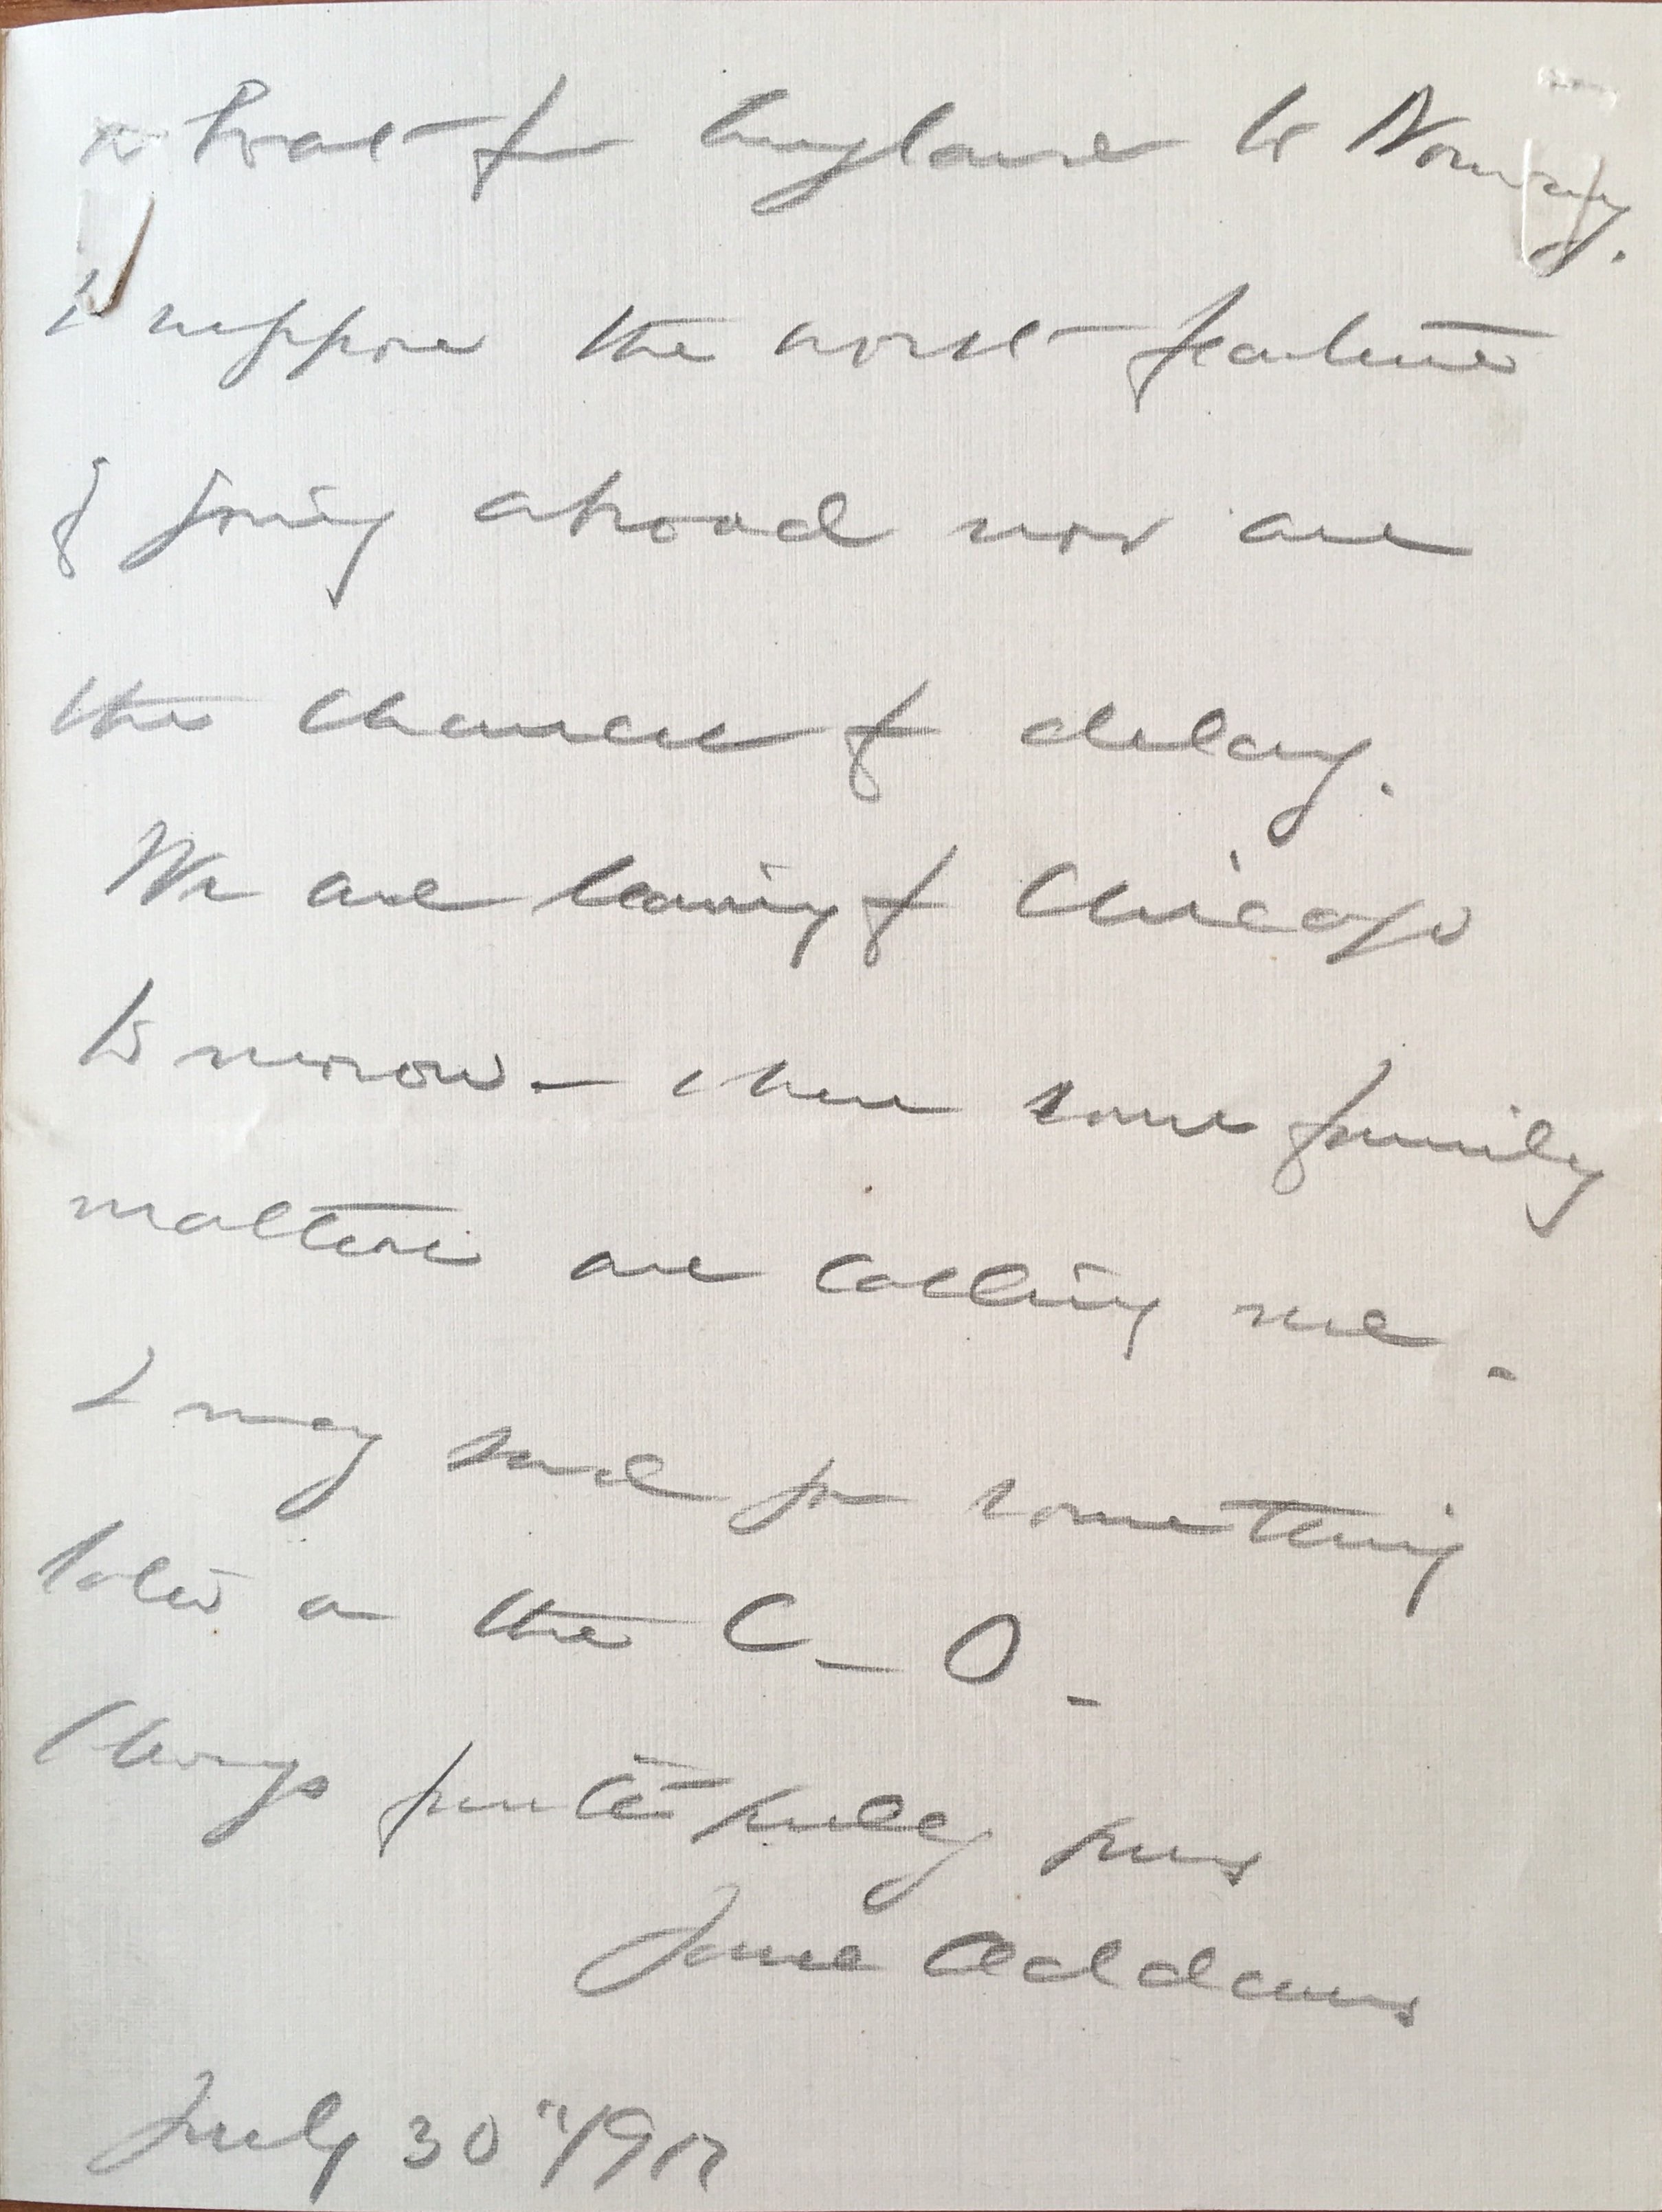 a boat for England to Norway.
I suppose the worst feature
of going abroad now are
the chances of delay.
We are leaving for Chicago
to morrow - where some family
matters are calling me -
I may send for something
later on the C - O -
Always faithfully yours
Jane Addams
July 30" 1917